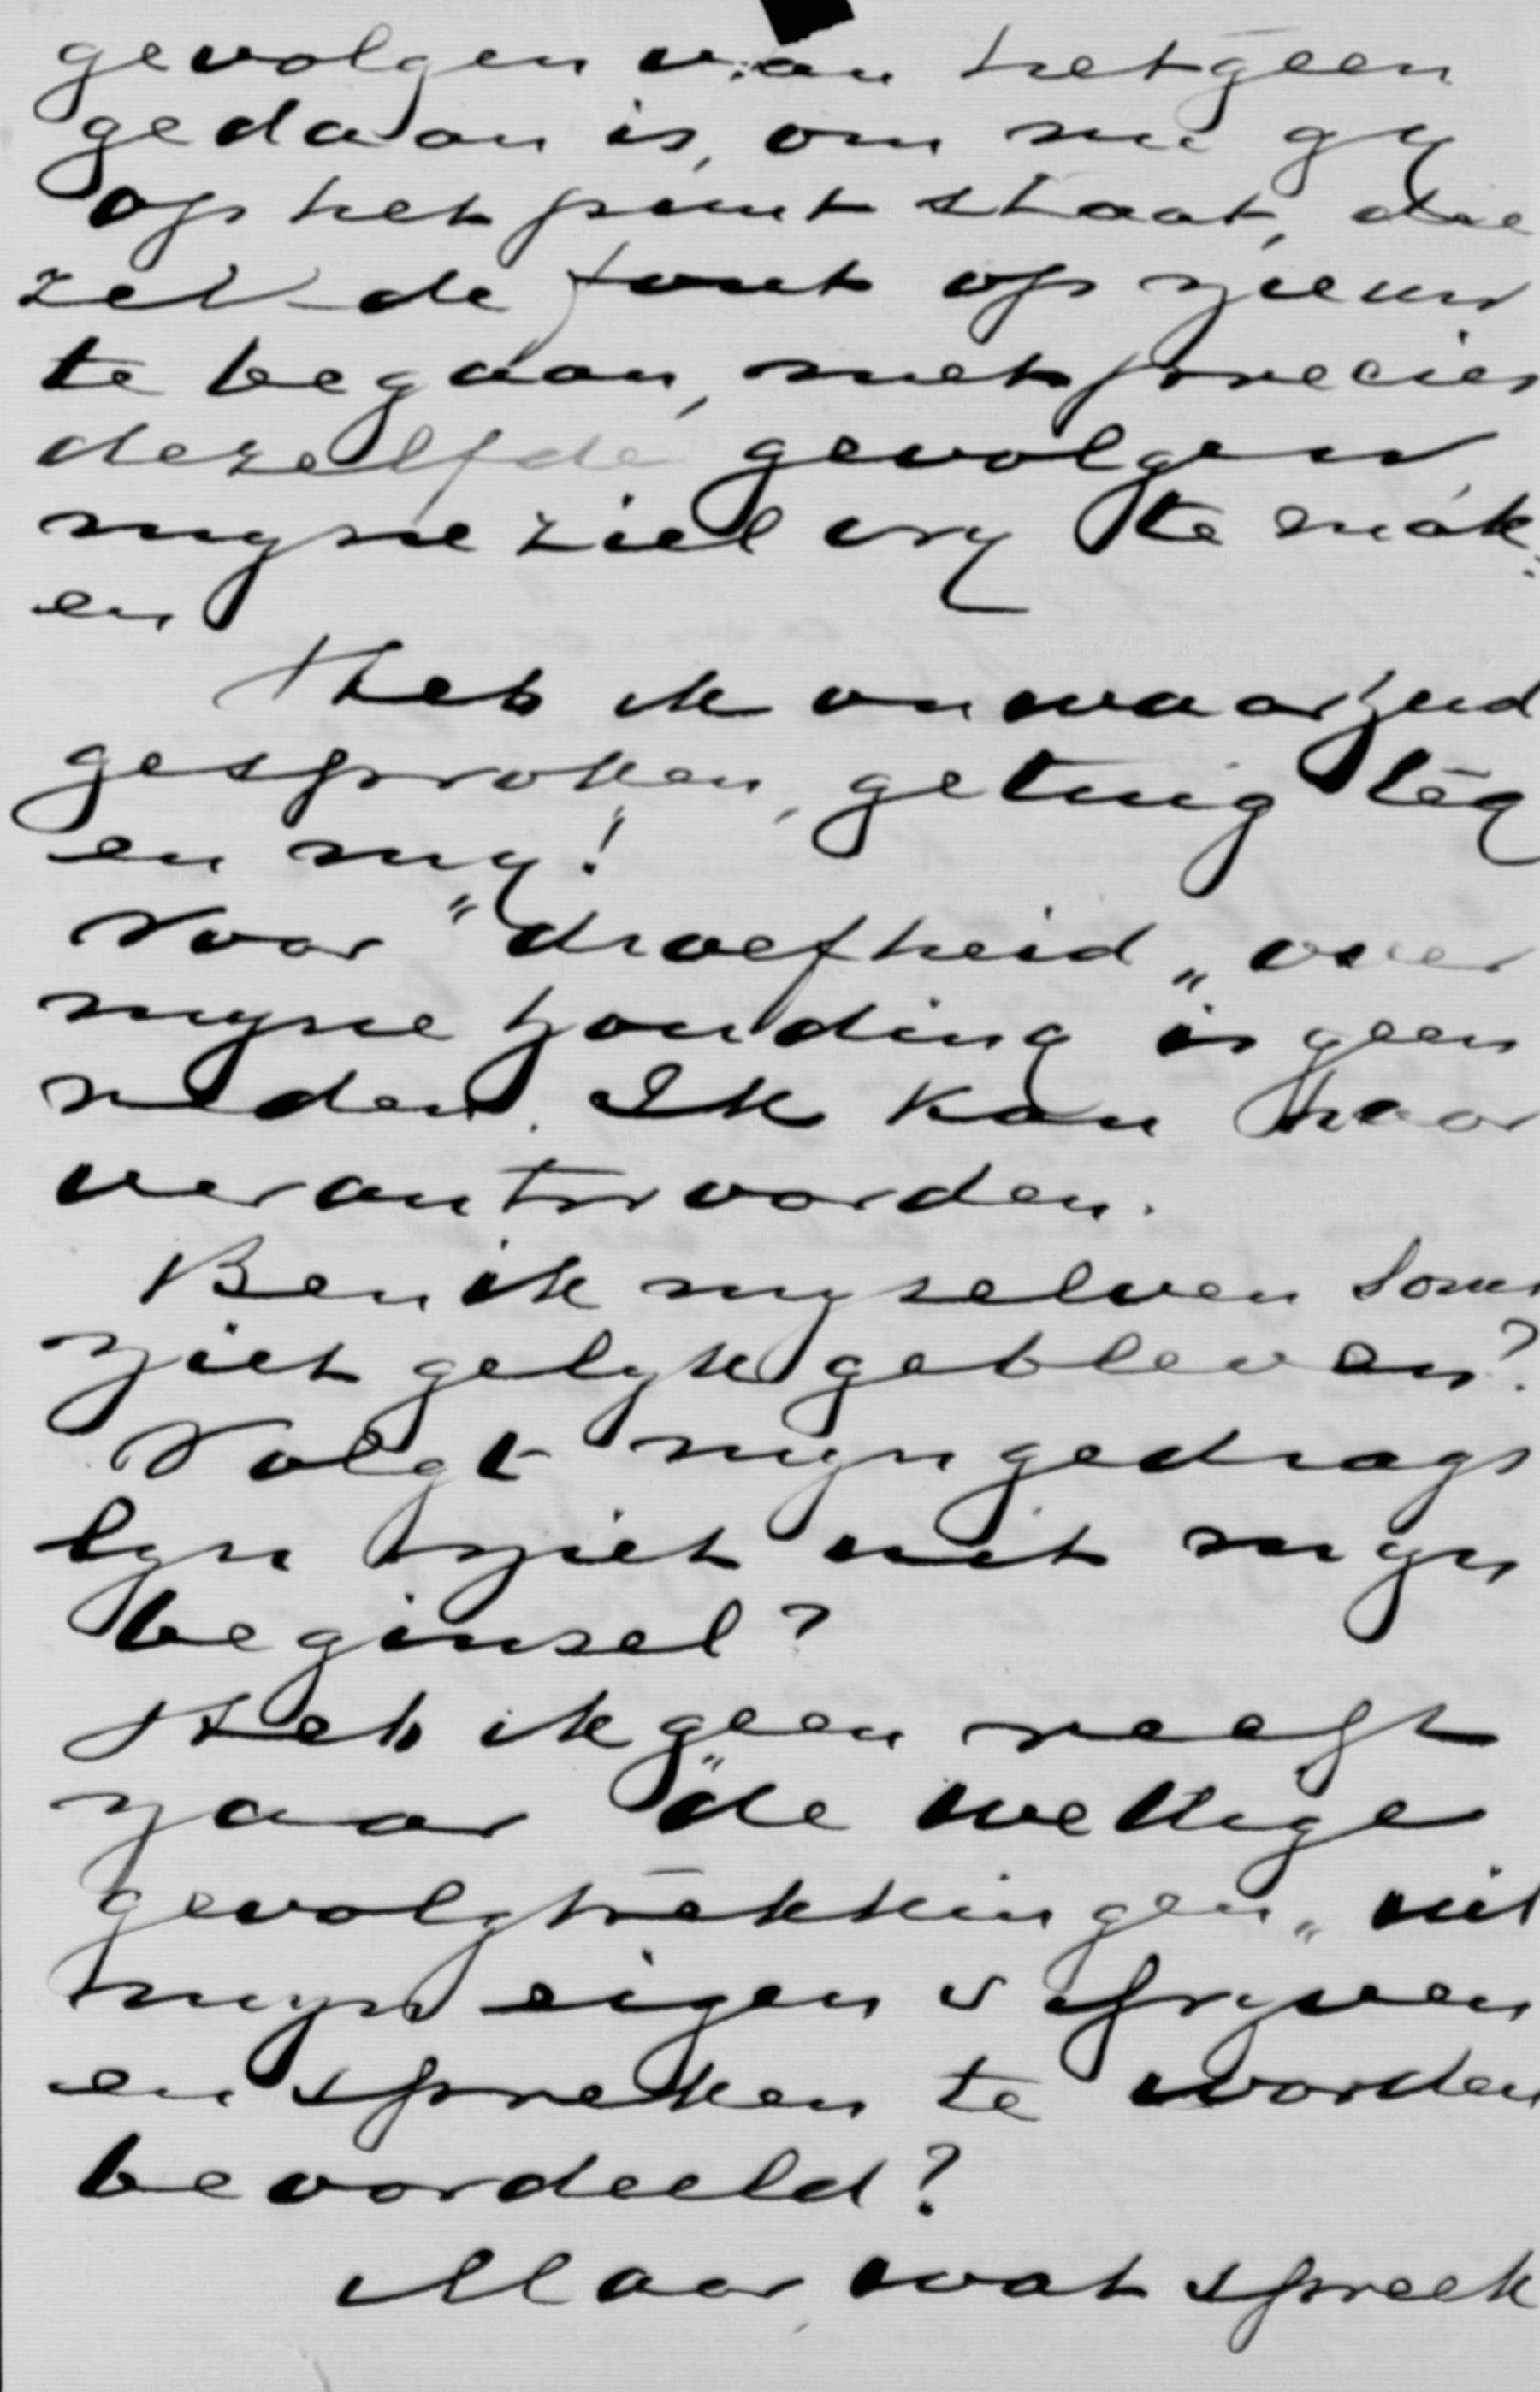 gevolgen van hetgeen
gedaan is, om nu gy
op het punt staat, die
zelfde fout op nieuw
te begaan, met precies
dezelfde gevolgen,
myne ziel vry te mak:
en
Heb ik onwaarheid
gesproken, getuig teg
en my!
Voor "droefheid„ over
myne houding is geen
reden. Ik kan haar
verantwoorden.
Ben ik myzelven soms
niet gelyk gebleven?
Volgt myn gedrags
lyn niet uit myn
beginsel?
Heb ik geen recht
naar "de wettige
gevolgtrekkingen„ uit
myn eigen schryven
en spreken te worden
beoordeeld?
Maar wat spreek